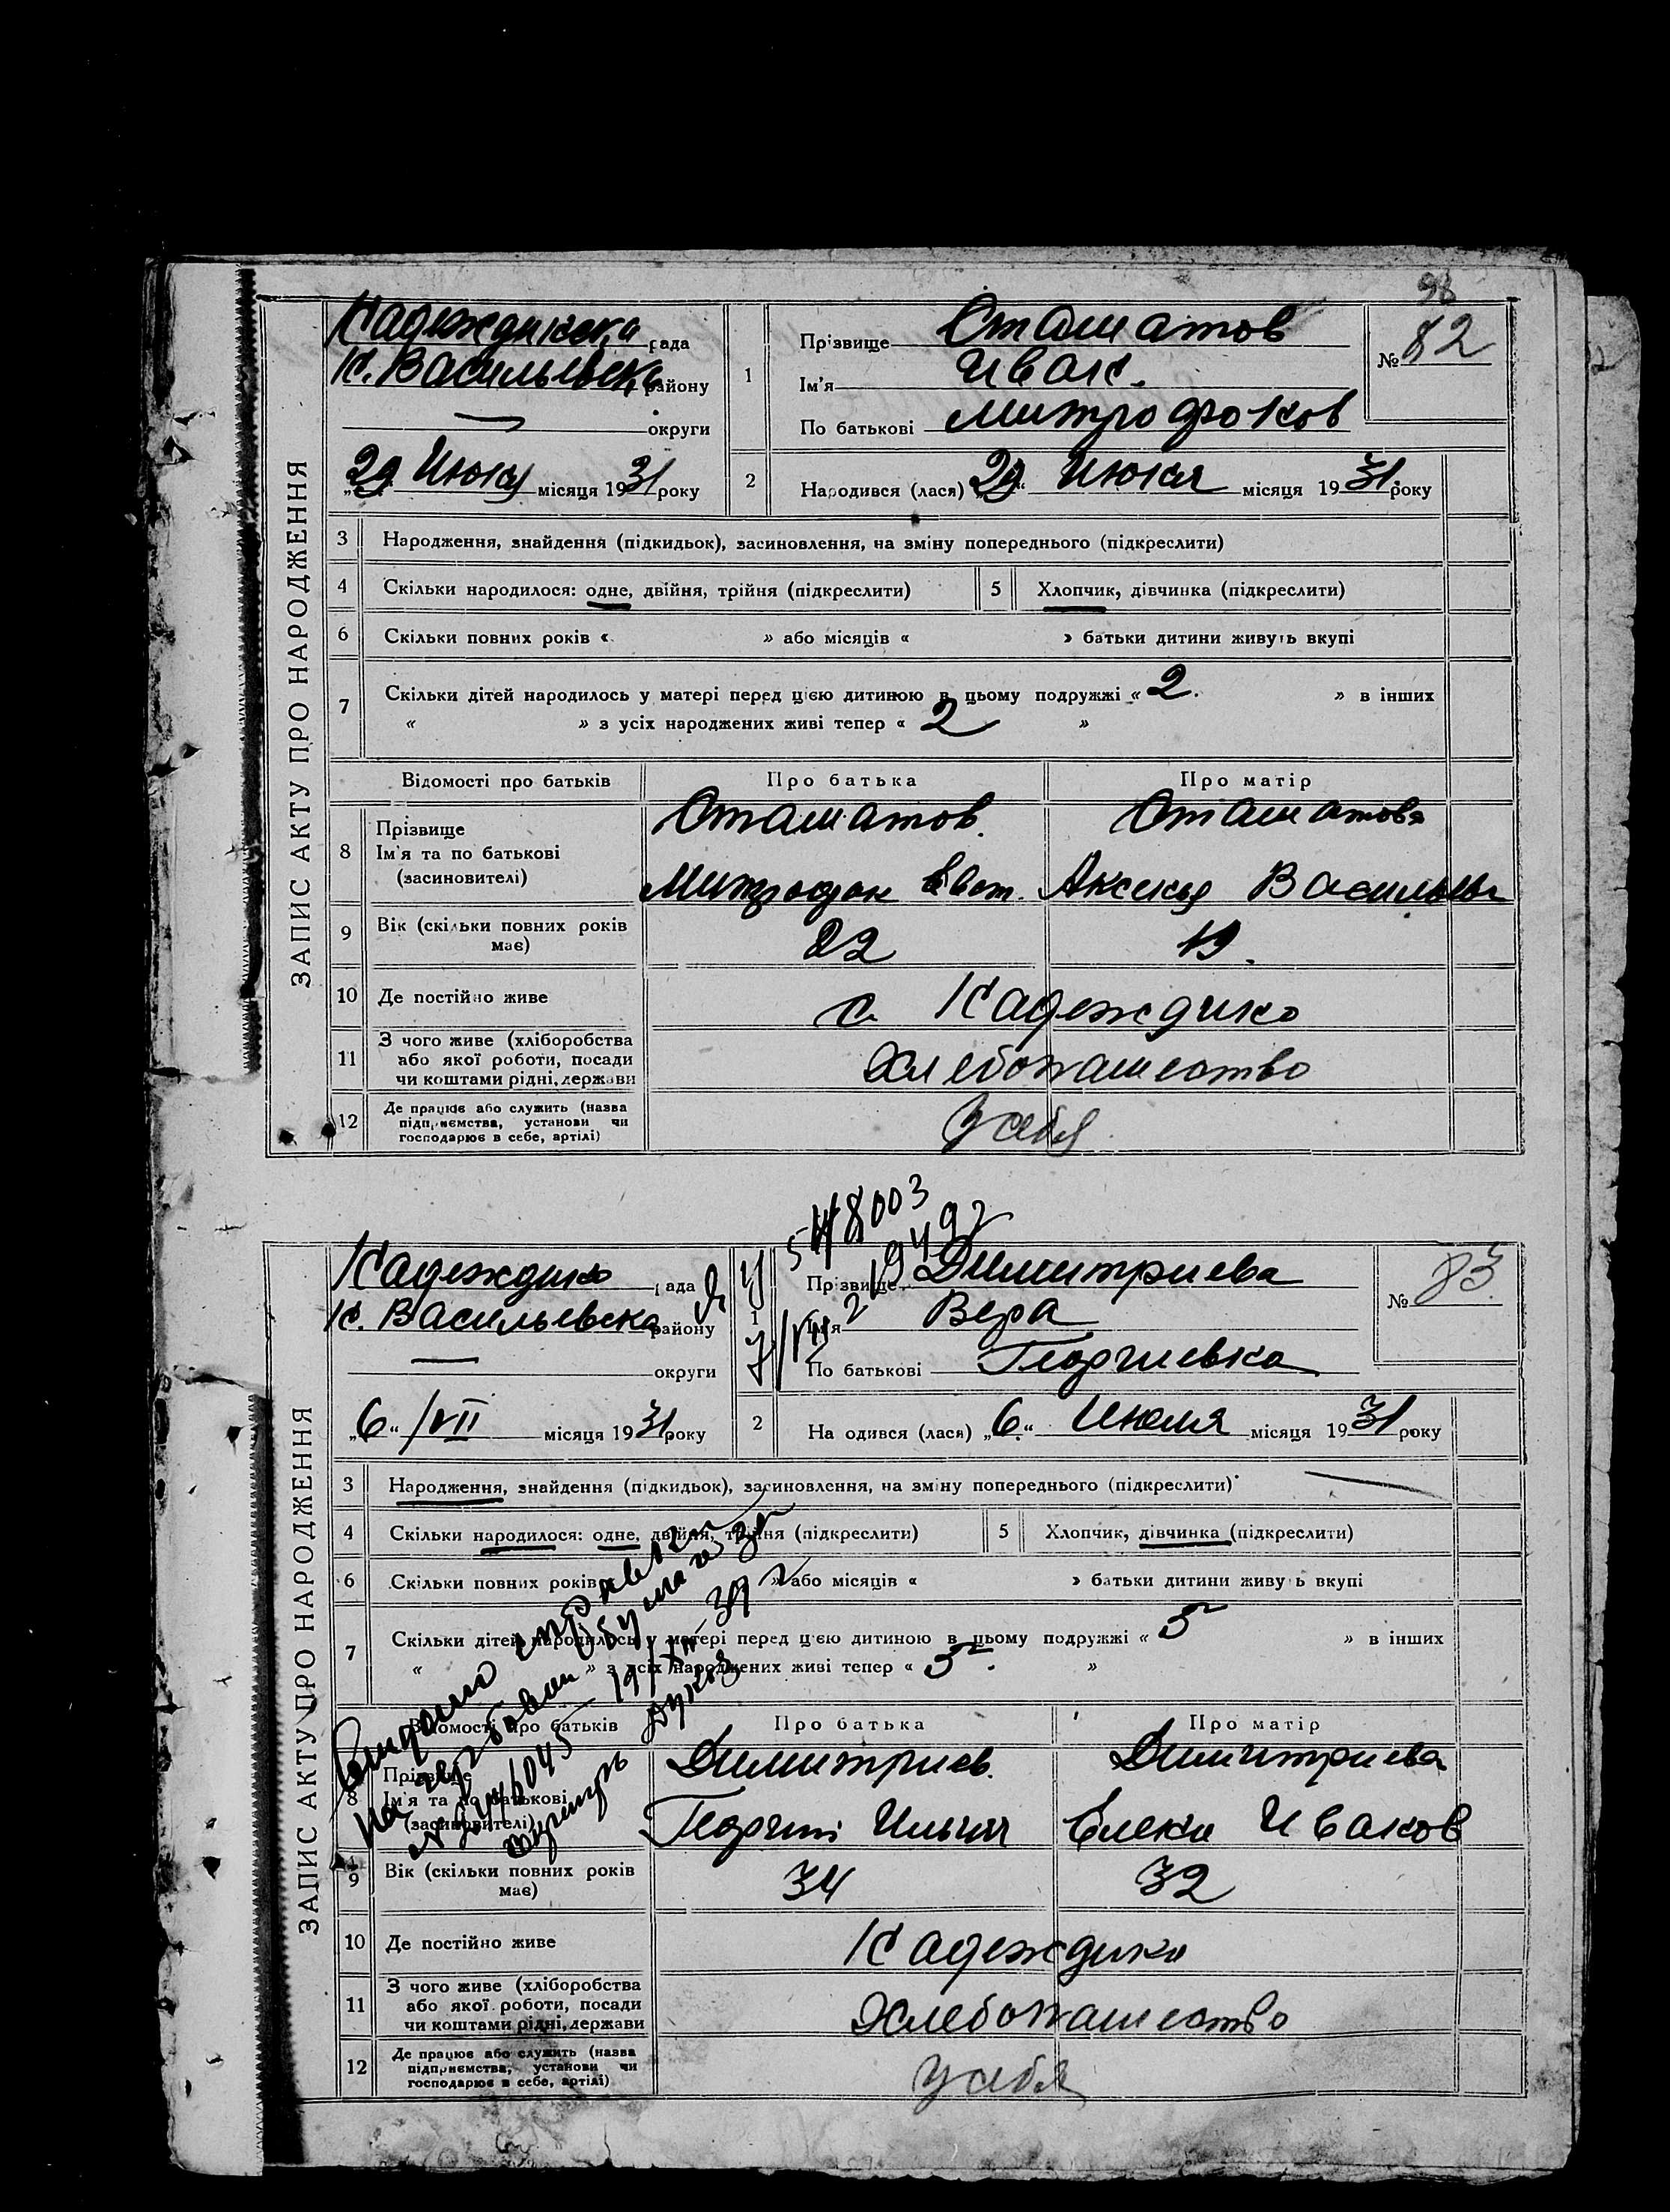 98
ЗАПИС АКТУ ПРО НАРОДЖЕННЯ
Надеждинска рада
Н. Васильевска району
— округи
„29 Июня місяця 1931 року
1
Прізвище Сташатов
Ім'я Иван.
По батькові Митрофанов
№ 82
2
Народився (лася) „29“ Июня місяця 1931 року
3 Народження, знайдення (підкидьок), засиновлення, на зміну попереднього (підкреслити)
4 Скільки народилося: одне, двійня, трійня (підкреслити)
5 Хлопчик, дівчинка (підкреслити)
6 Скільки повних років « » або місяців « » батьки дитини живуть вкупі
7 Скільки дітей народилось у матері перед цією дитиною в цьому подружжі « 2. » в інших
« » з усіх народжених живі тепер « 2 »
Відомості про батьків Про батька Про матір
8 Прізвище
Ім'я та по батькові
(засиновителі)
Сташатов. Сташатова
Митрофан Аксенья Василье
9 Вік (скільки повних років має) 22 19.
10 Де постійно живе с. Надеждино
11 З чого живе (хліборобства
або якої роботи, посади
чи коштами рідні, держави
Хлебопашество
12 Де працює або служить (назва
підприємства, установи чи
господарює в себе, артілі)
У себя
548003
219492
ЗАПИС АКТУ ПРО НАРОДЖЕННЯ
Надеждино рада
Н. Васильевска району
— округи
„6“ /VII місяця 1931 року
1
Прізвище Димитриева
Ім'я Вера
По батькові Георгиевна
№ 83.
2
Народився (лася) „6.“ Июля місяця 1931 року
3 Народження, знайдення (підкидьок), засиновлення, на зміну попереднього (підкреслити)
4 Скільки народилося: одне, двійня, трійня (підкреслити)
5 Хлопчик, дівчинка (підкреслити)
6 Скільки повних років « » або місяців « » батьки дитини живуть вкупі
7 Скільки дітей народилось у матері перед цією дитиною в цьому подружжі « 5 » в інших
« » з усіх народжених живі тепер « 5. »
Видано справку
на гербовой бумаге за
19/XII-39 г
Відомості про батьків Про батька Про матір
8 Прізвище
Ім'я та по батькові
(засиновителі)
Димитриев. Димитриева
Георгий Ильич Елена Иванов
9 Вік (скільки повних років має) 34 32
10 Де постійно живе Надеждино
11 З чого живе (хліборобства
або якої роботи, посади
чи коштами рідні, держави
Хлебопашество
12 Де працює або служить (назва
підприємства, установи чи
господарює в себе, артілі)
У себя